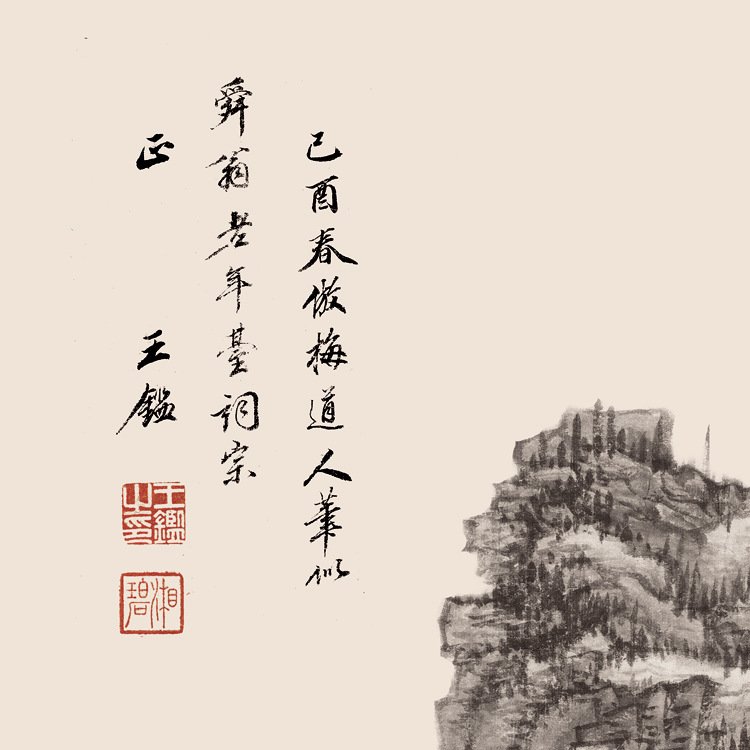 己酉春倣梅道人筆似
舜翁老年臺詞宗
正 王鑑
王鑑之印
湘碧